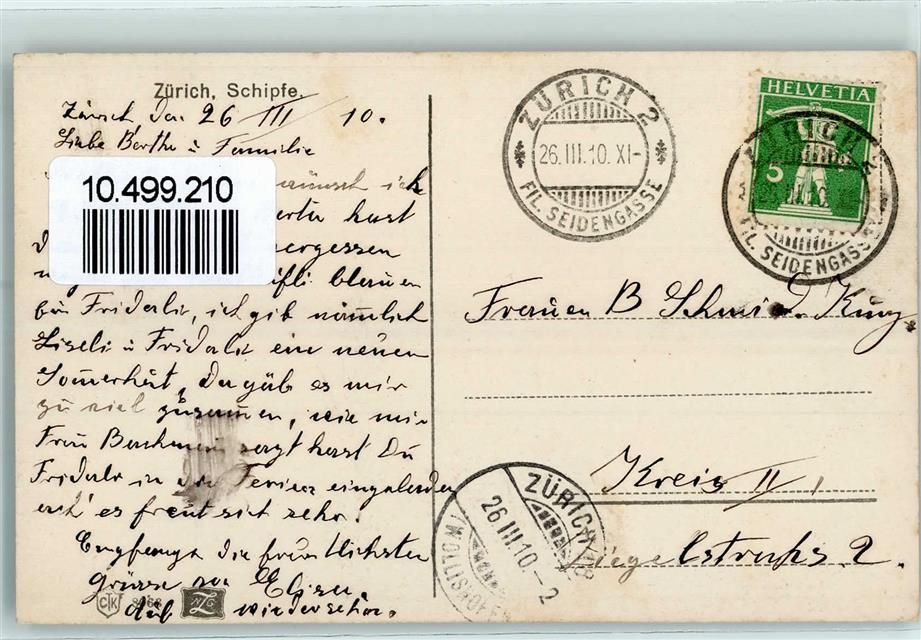 Zürich, Schipfe.
Zürich den 26 III 10.
Liebe Bertha u Familie
10.499.210
wünsch ich
hast
vergessen
blauen
bei Fridali, ich gib nämlich
Liseli u Fridali ein neuen
Sommerhut, Du gäb es mir
zu viel zusammen, wie mir
Frau Bachmann sagt hast Du
Fridali in den Ferien eingeladen
ach' es freut sich sehr.
Empfangt die freundlichsten
grüsse von Elise.
auf wiedersehn.
CK 8968
ZÜRICH 2
26.III.10. XI-
FIL. SEIDENGASSE
HELVETIA
5
ZÜRICH 2
FIL. SEIDENGASSE
Frauen B Schmid-Kunz.
Kreis II
Ziegelstrasse 2.
ZÜRICH
26 III.10.-2